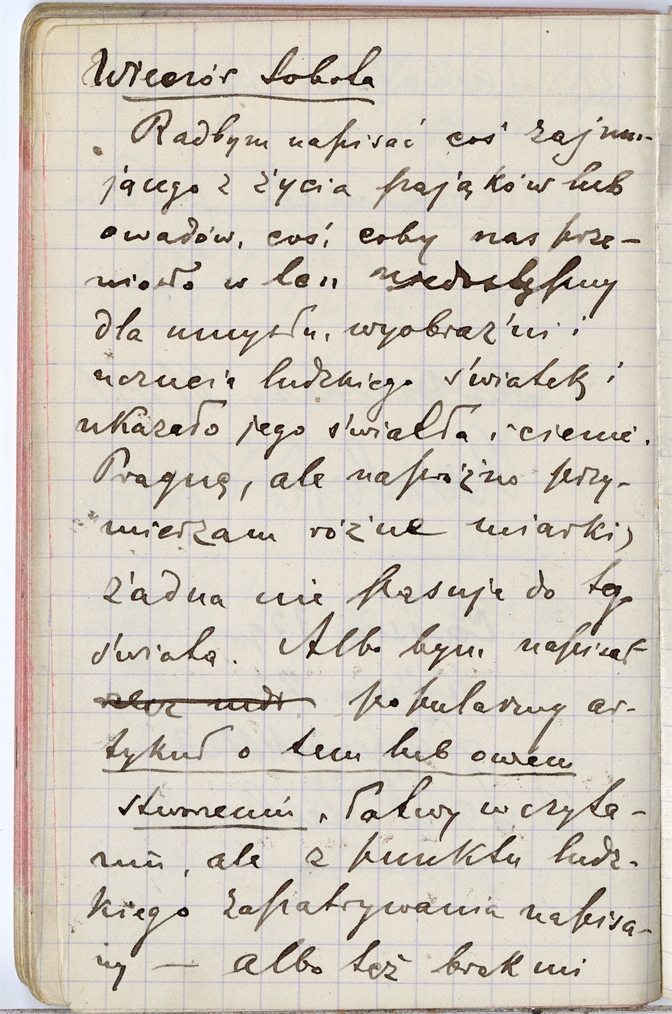 Wieczór sobota
Radbym napisać coś zajmu-
jącego z życia pająków lub
owadów, coś, coby nas prze-
niosło w ten niedostępny
dla umysłu, wyobraźni i
uczucia ludzkiego światek i
ukazało jego światła i cienie.
Pragnę, ale napróżno przy-
mierzam różne miarki,
żadna nie pasuje do tego
świata. Albo bym napisał
popularny ar-
tykuł o tem lub owem
stworzeniu, łatwy w czyta-
niu, ale z punktu ludz-
kiego zapatrywania napisa-
ny — albo też brak mi